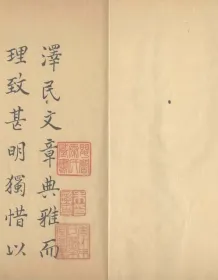 澤民文章典雅而
理致甚明獨惜以